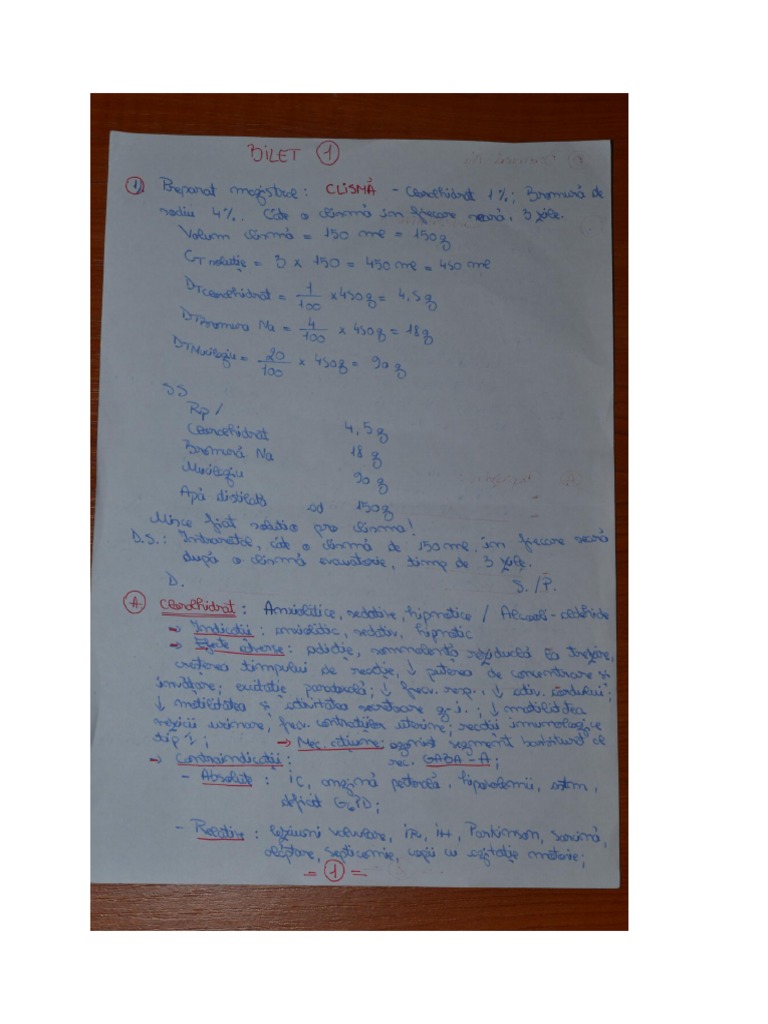 BILET 1
1) Preparat magistral: CLISMĂ - Cloralhidrat 1%; Bromură de
sodiu 4%. Câte o clismă în fiecare seară, 3 zile.
Volum clismă = 150 ml = 150 g
GT soluție = 3 x 150 = 450 ml = 450 ml
DT Cloralhidrat = 1/100 x 450 g = 4,5 g
DT Bromură Na = 4/100 x 450 g = 18 g
DT Mucilagiu = 20/100 x 450 g = 90 g
SS
Rp/
Cloralhidrat 4,5 g
Bromură Na 18 g
Mucilagiu 90 g
Apă distilată ad 150 g
Misce fiat solutio pro clisma!
D.S.: Intrarectal, câte o clismă de 150 ml în fiecare seară
după o clismă evacuatorie, timp de 3 zile.
D. S./P.
A Cloralhidrat: Anxiolitice, sedative, hipnotice / Alcooli-aldehide
→ Indicații: anxiolitic, sedativ, hipnotic
→ Efecte adverse: adicție, somnolență reziduală la trezire,
creșterea timpului de reacție, ↓ puterea de concentrare și
învățare; excitație paradoxală; ↓ frecv. resp., ↓ activ. cordului;
↓ motilitatea și activitatea secretoare g-i.; ↓ motilitatea
vezicii urinare, frecv. contracțiilor uterine; reacții imunologice
tip 1; → Mec. acțiune: agonist segment barbituric al
→ Contraindicații: rec. GABA-A;
- Absolute: IC, angină pectorală, hipovolemii, astm,
deficit G6PD;
- Relative: leziuni valvulare, IR, IH, Parkinson, sarcină,
alăptare, septicemie, copii cu agitație motorie;
= 1 =